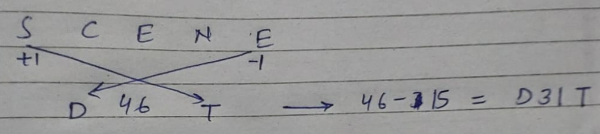 S C E N E
+1 -1
D 46 T → 46-15 = D31T